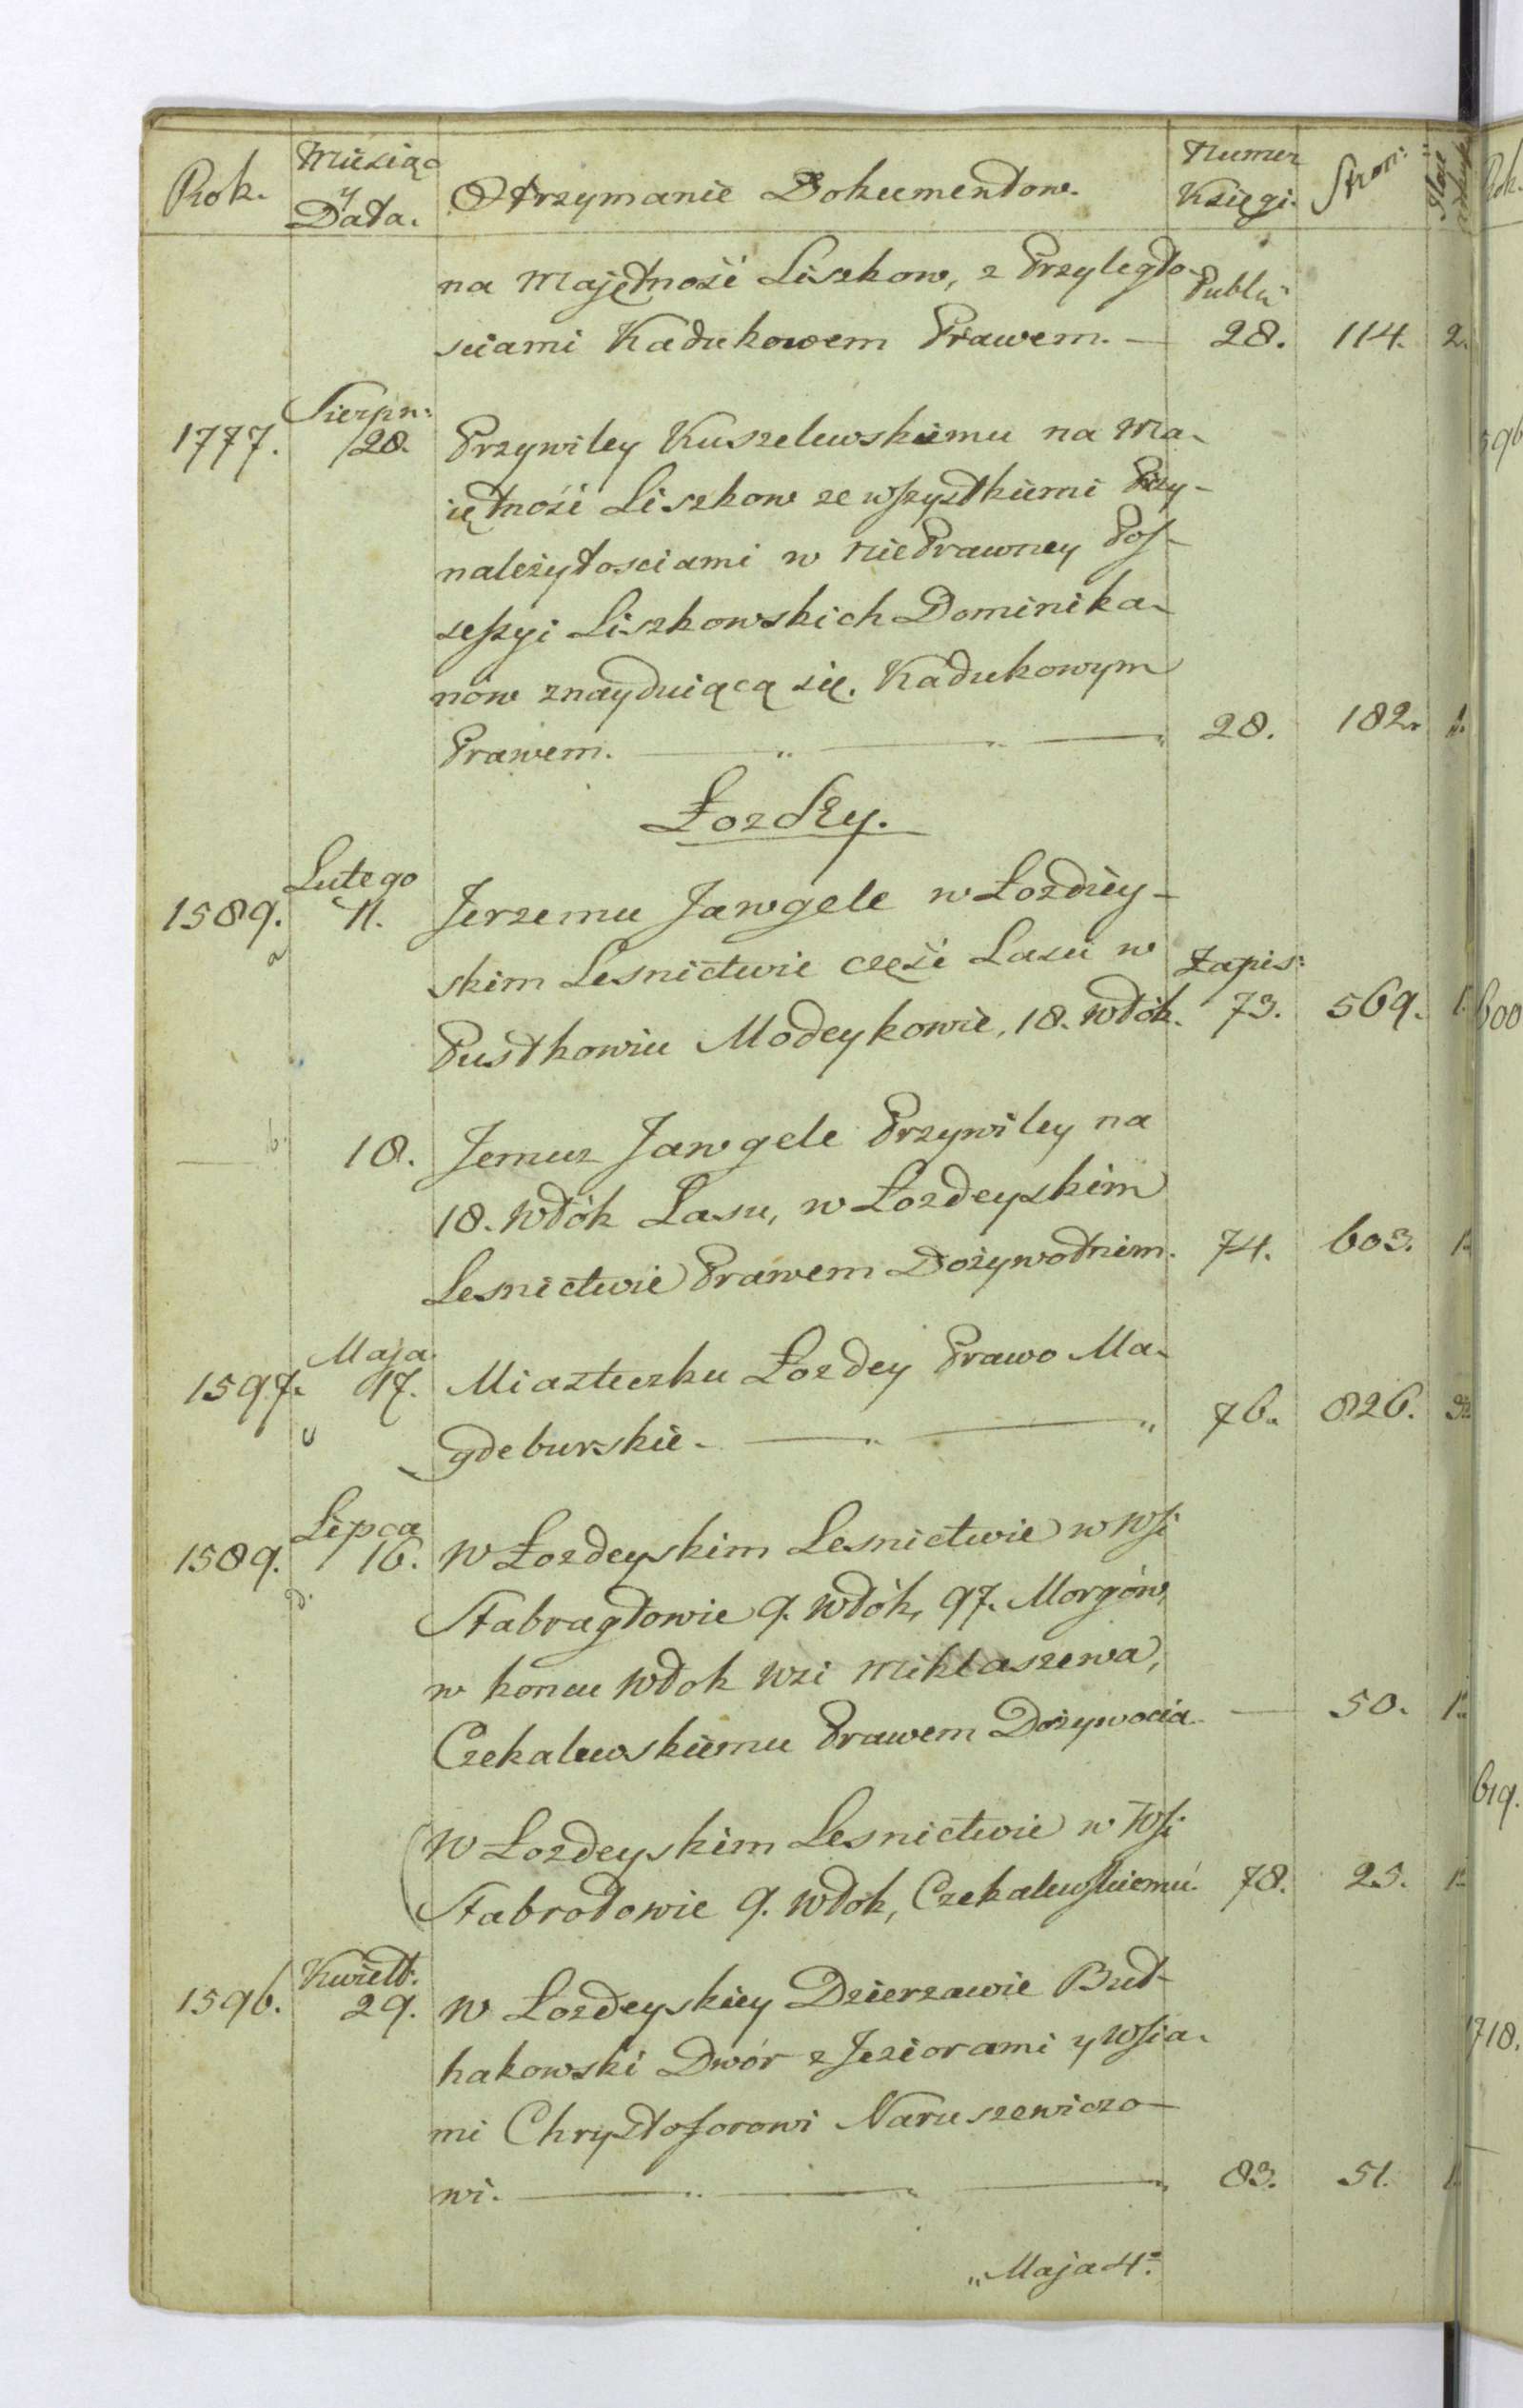 Rok. Miesiąc y Data. Otrzymanie Dokumentow. Numer Księgi. Stron:
na Majętność Liszkow, z Przyległo- Publ:
sciami Kadukowem Prawem. — 28. 114. 2.
Sierpn:
1777. 28. Przywiley Kuszelewskiemu na Ma-
iętność Liszkow ze wszystkiemi Przy-
należytosciami w nieprawney Pos-
sessyi Liszkowskich Dominika-
nów znayduiącą się. Kadukowym
Prawem. — 28. 182. 1.
Łozdzy.
Lutego
1589. 11. Jerzemu Jawgele w Łozdiey-
a
skim Lesnictwie część Lasu w Zapis:
Pustkowiu Modeykowie, 18. włók. 73. 569. 1.
— b. 18. Jemuz Jawgele Przywiley na
18. Włók Lasu, w Łozdeyskim
Lesnictwie Prawem Dożywotniem. 74. 603. 1.
Maja
1597. 17. Miasteczku Łozdey Prawo Ma-
c
gdeburskie. — 76. 826.
Lipca
1589. 16. W Łozdeyskim Lesnictwie w Wsi
d.
Stabragłowie 9. włók, 97. Morgów,
w koncu Włok Wsi Mikłaszewa,
Czekalewskiemu Prawem Dożywocia — 50. 1.
W Łozdeyskim Lesnictwie w Wsi
Stabrołowie 9. Włok, Czekalewskiemu. 78. 25. 1.
Kwiett:
1596. 29. W Łozdeyskiey Dzierzawie But-
hakowski Dwór z Jeziorami y Wsia-
mi Chrysztoforowi Naruszewiczo-
wi. — 83. 51. 1.
„Maja 4.